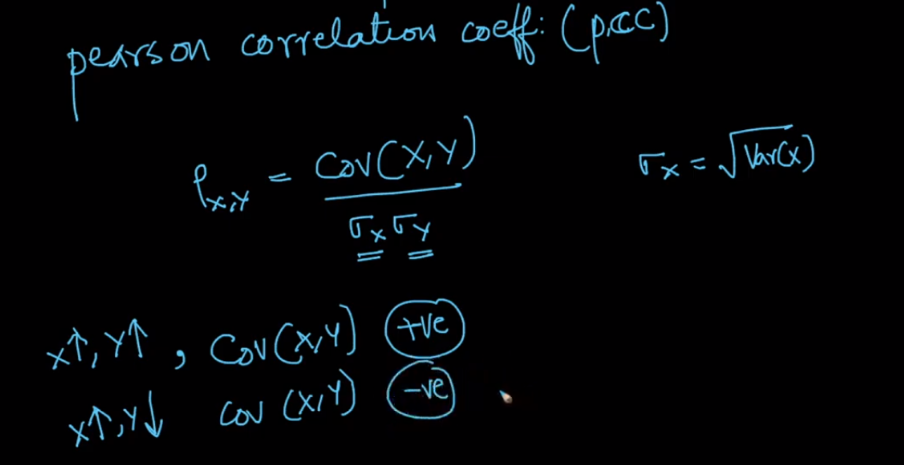 pearson correlation coeff: (p.CC)
ρ_{X,Y} = Cov(X,Y) / σ_X σ_Y
σ_X = √Var(X)
X↑, Y↑ , Cov(X,Y) +ve
X↑, Y↓ Cov (X,Y) -ve